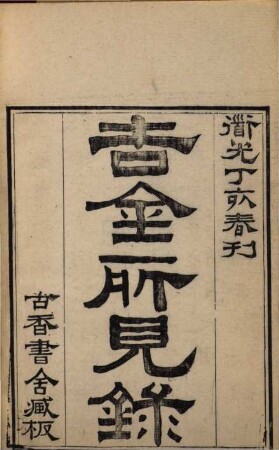 道光丁亥春刊
吉金所見錄
古香書舍藏板